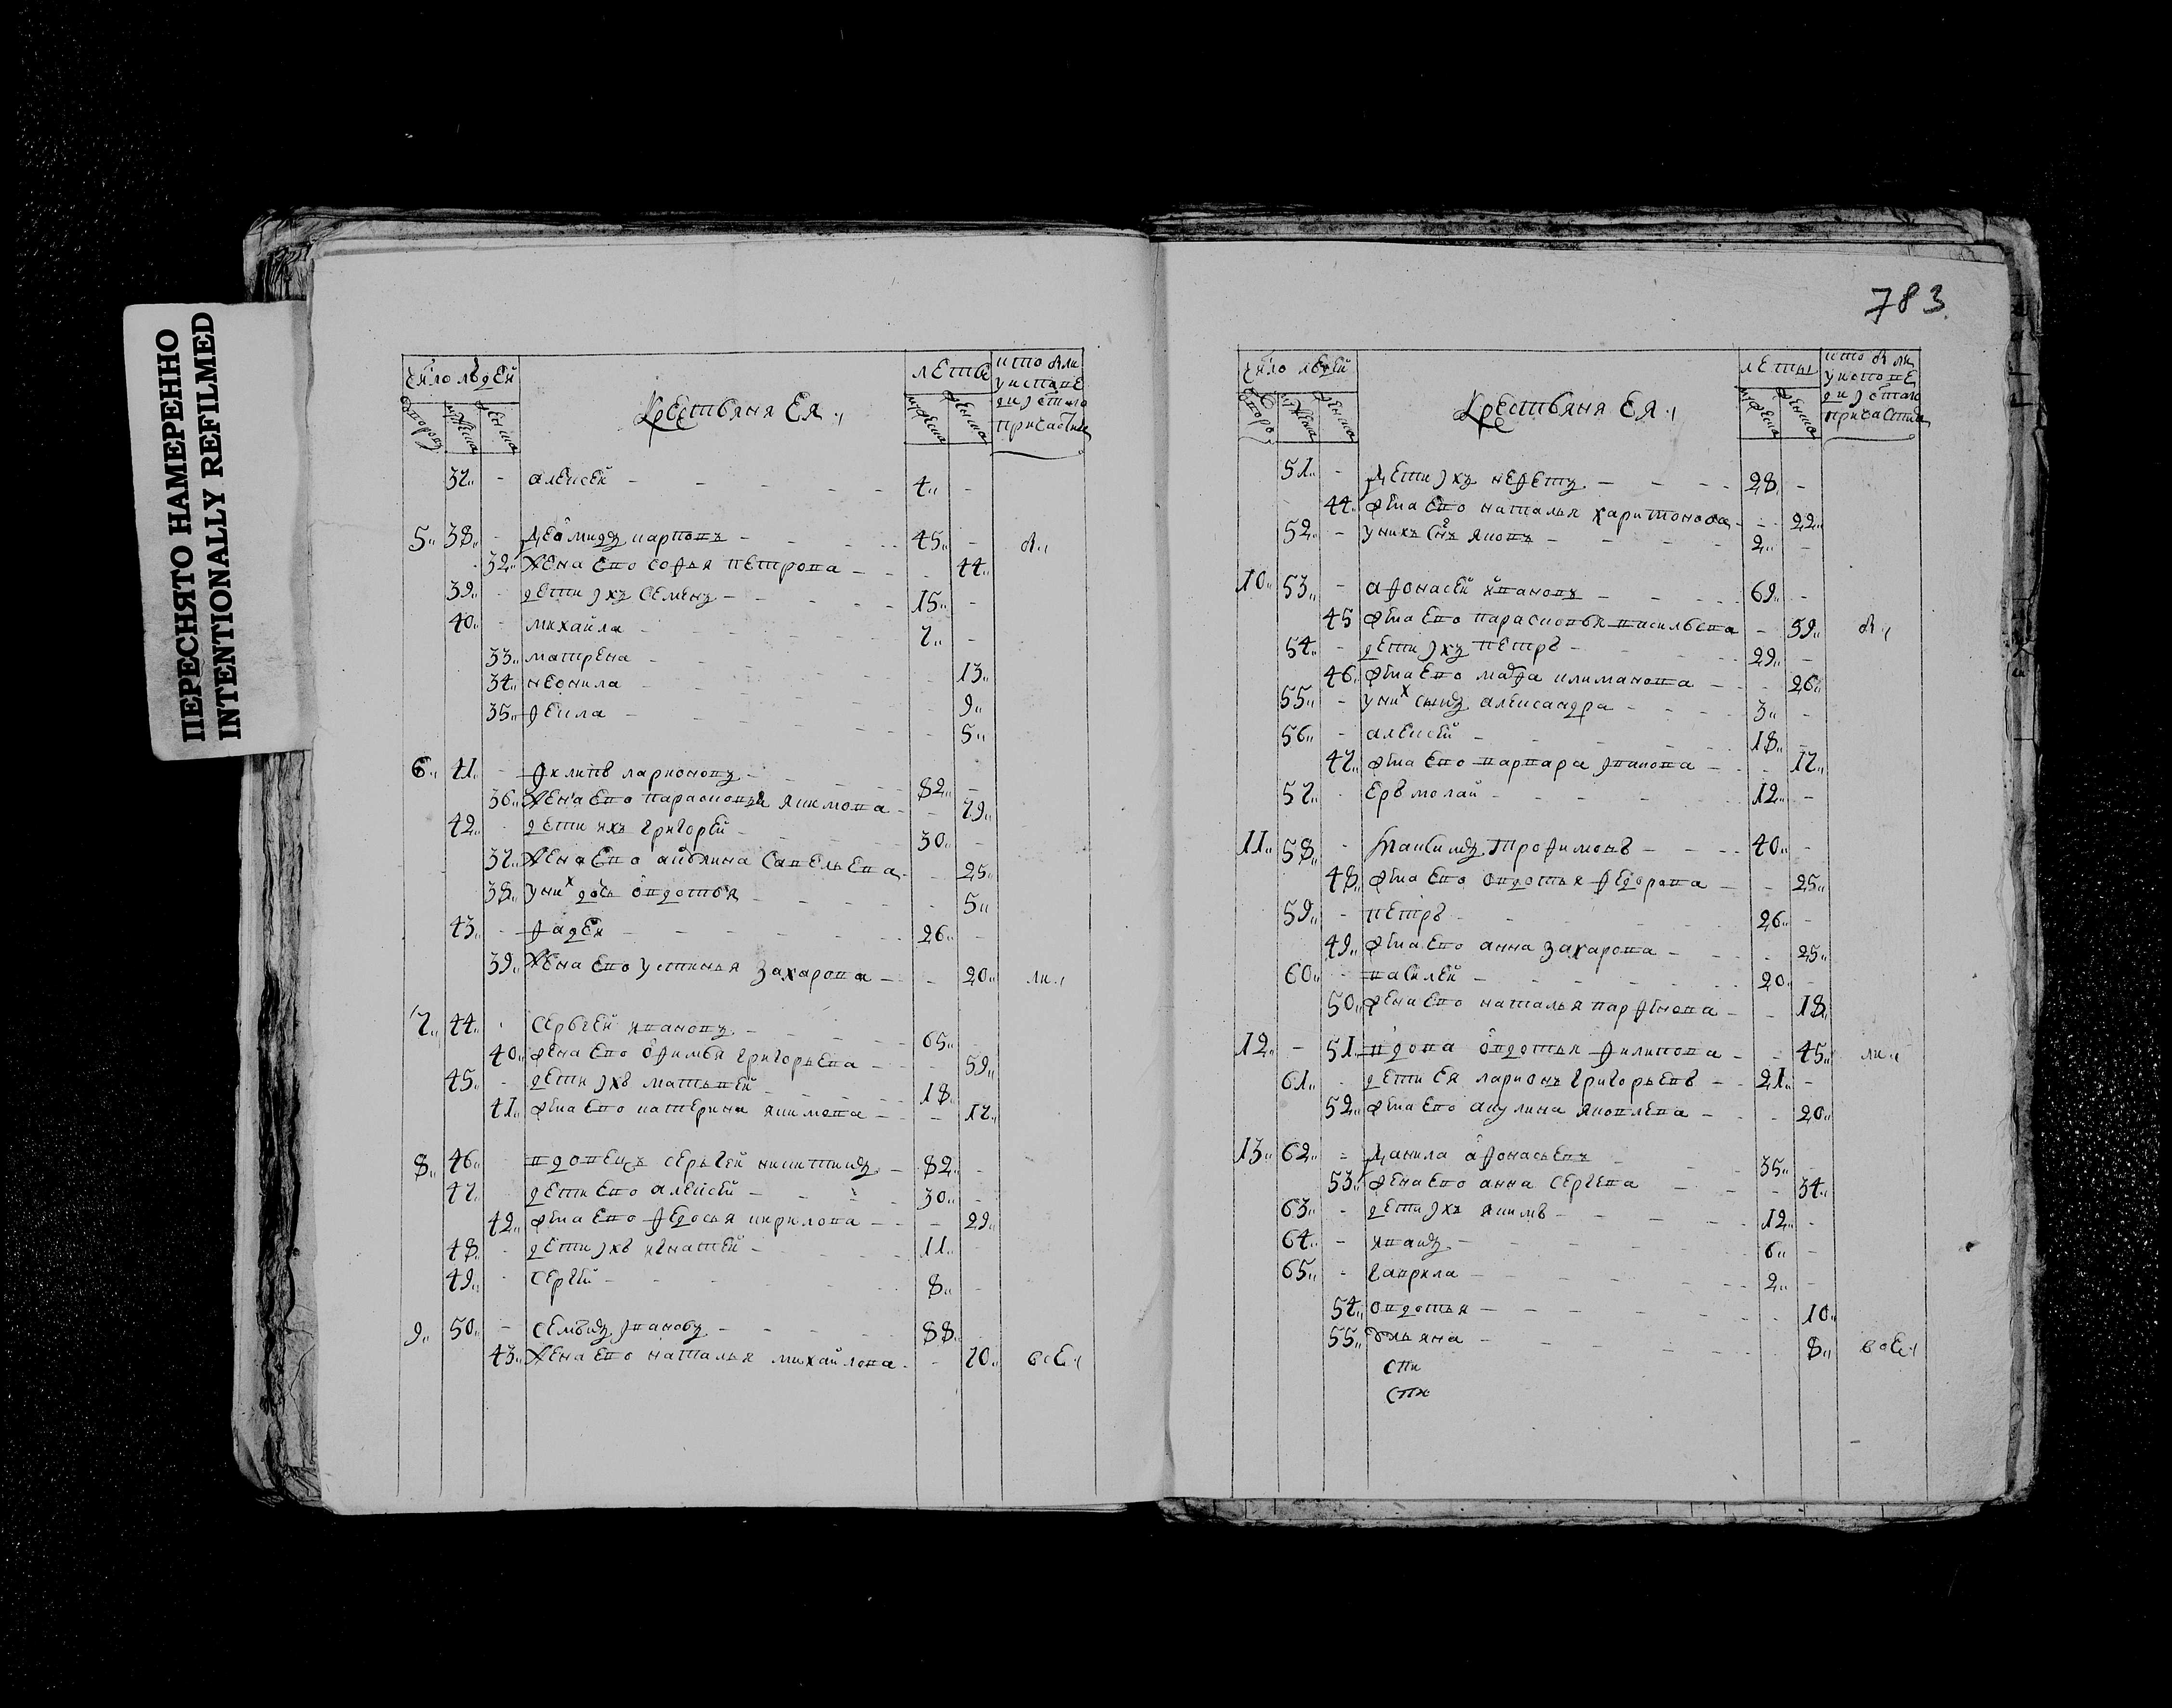 ПЕРЕСНЯТО НАМЕРЕННО
INTENTIONALLY REFILMED
783
число людей
Крестьяня Ея
леты
37 - алексей - 4 -
5 38 - Деомидъ карповъ - 45 -
32 Жена ево софья петрова - 44
39 - дети ихъ семенъ - 15 -
40 - михайла - 7 -
33 матрена - 13
34 неонила - 9
35 фекла - 5
6 41 - Филипъ ларионовъ - 82 -
36 Жена ево парасковья якимова - 79
42 - дети ихъ григорей - 30 -
37 Жена ево Савельева - 25
38 у них дочь овдотья - 5
43 - Фадей - 26 -
39 Жена ево устинья захарова - 20
7 44 - Сергей ивановъ - 65 -
40 жена ево офимья григорьева - 59
45 - дети ихъ матьвей - 18 -
41 жена ево катерина якимова - 17
8 46 вдовецъ сергей никитинъ - 82 -
47 дети ево алексей - 30 -
42 жена ево федосья кирилова - 29
48 - дети ихъ игнатей - 11
49 - Сергей - 8 -
9 50 - семенъ ивановъ - 88
43 Жена ево наталья михайлова - 70 все
число людей
Крестьяня Ея
леты
51 - Дети ихъ - 28 -
44 жена ево наталья харитонова - 22
52 - у нихъ сынъ яковъ - 2 -
10 53 - афонасей ивановъ - 69 -
45 жена ево парасковья васильева - 59
54 - дети ихъ петръ - 29 -
46 жена ево марфа климанова - 26
55 - у них сынъ александра - 3 -
56 - алексей - 18 -
47 жена ево варвара иванова - 17
57 - ерьмолай - 12 -
11 58 - Максимъ Трофимовъ - 40 -
48 жена ево овдотья федорова - 25
59 - петръ - 26 -
49 жена ево анна захарова - 25
60 - василей - 20 -
50 жена ево наталья парфенова - 18
12 - 51 вдова овдотья филипова - 45
61 - дети ея ларионъ григорьевъ - 21 -
52 жена ево акулина яковлева - 20
13 62 - Данила афонасьевъ - 35 -
53 жена ево анна сергева - 34
63 - дети ихъ якимъ - 12 -
64 - иванъ - 6 -
65 - гаврила - 2 -
54 овдотья - 10
55 ульяна - 8 все